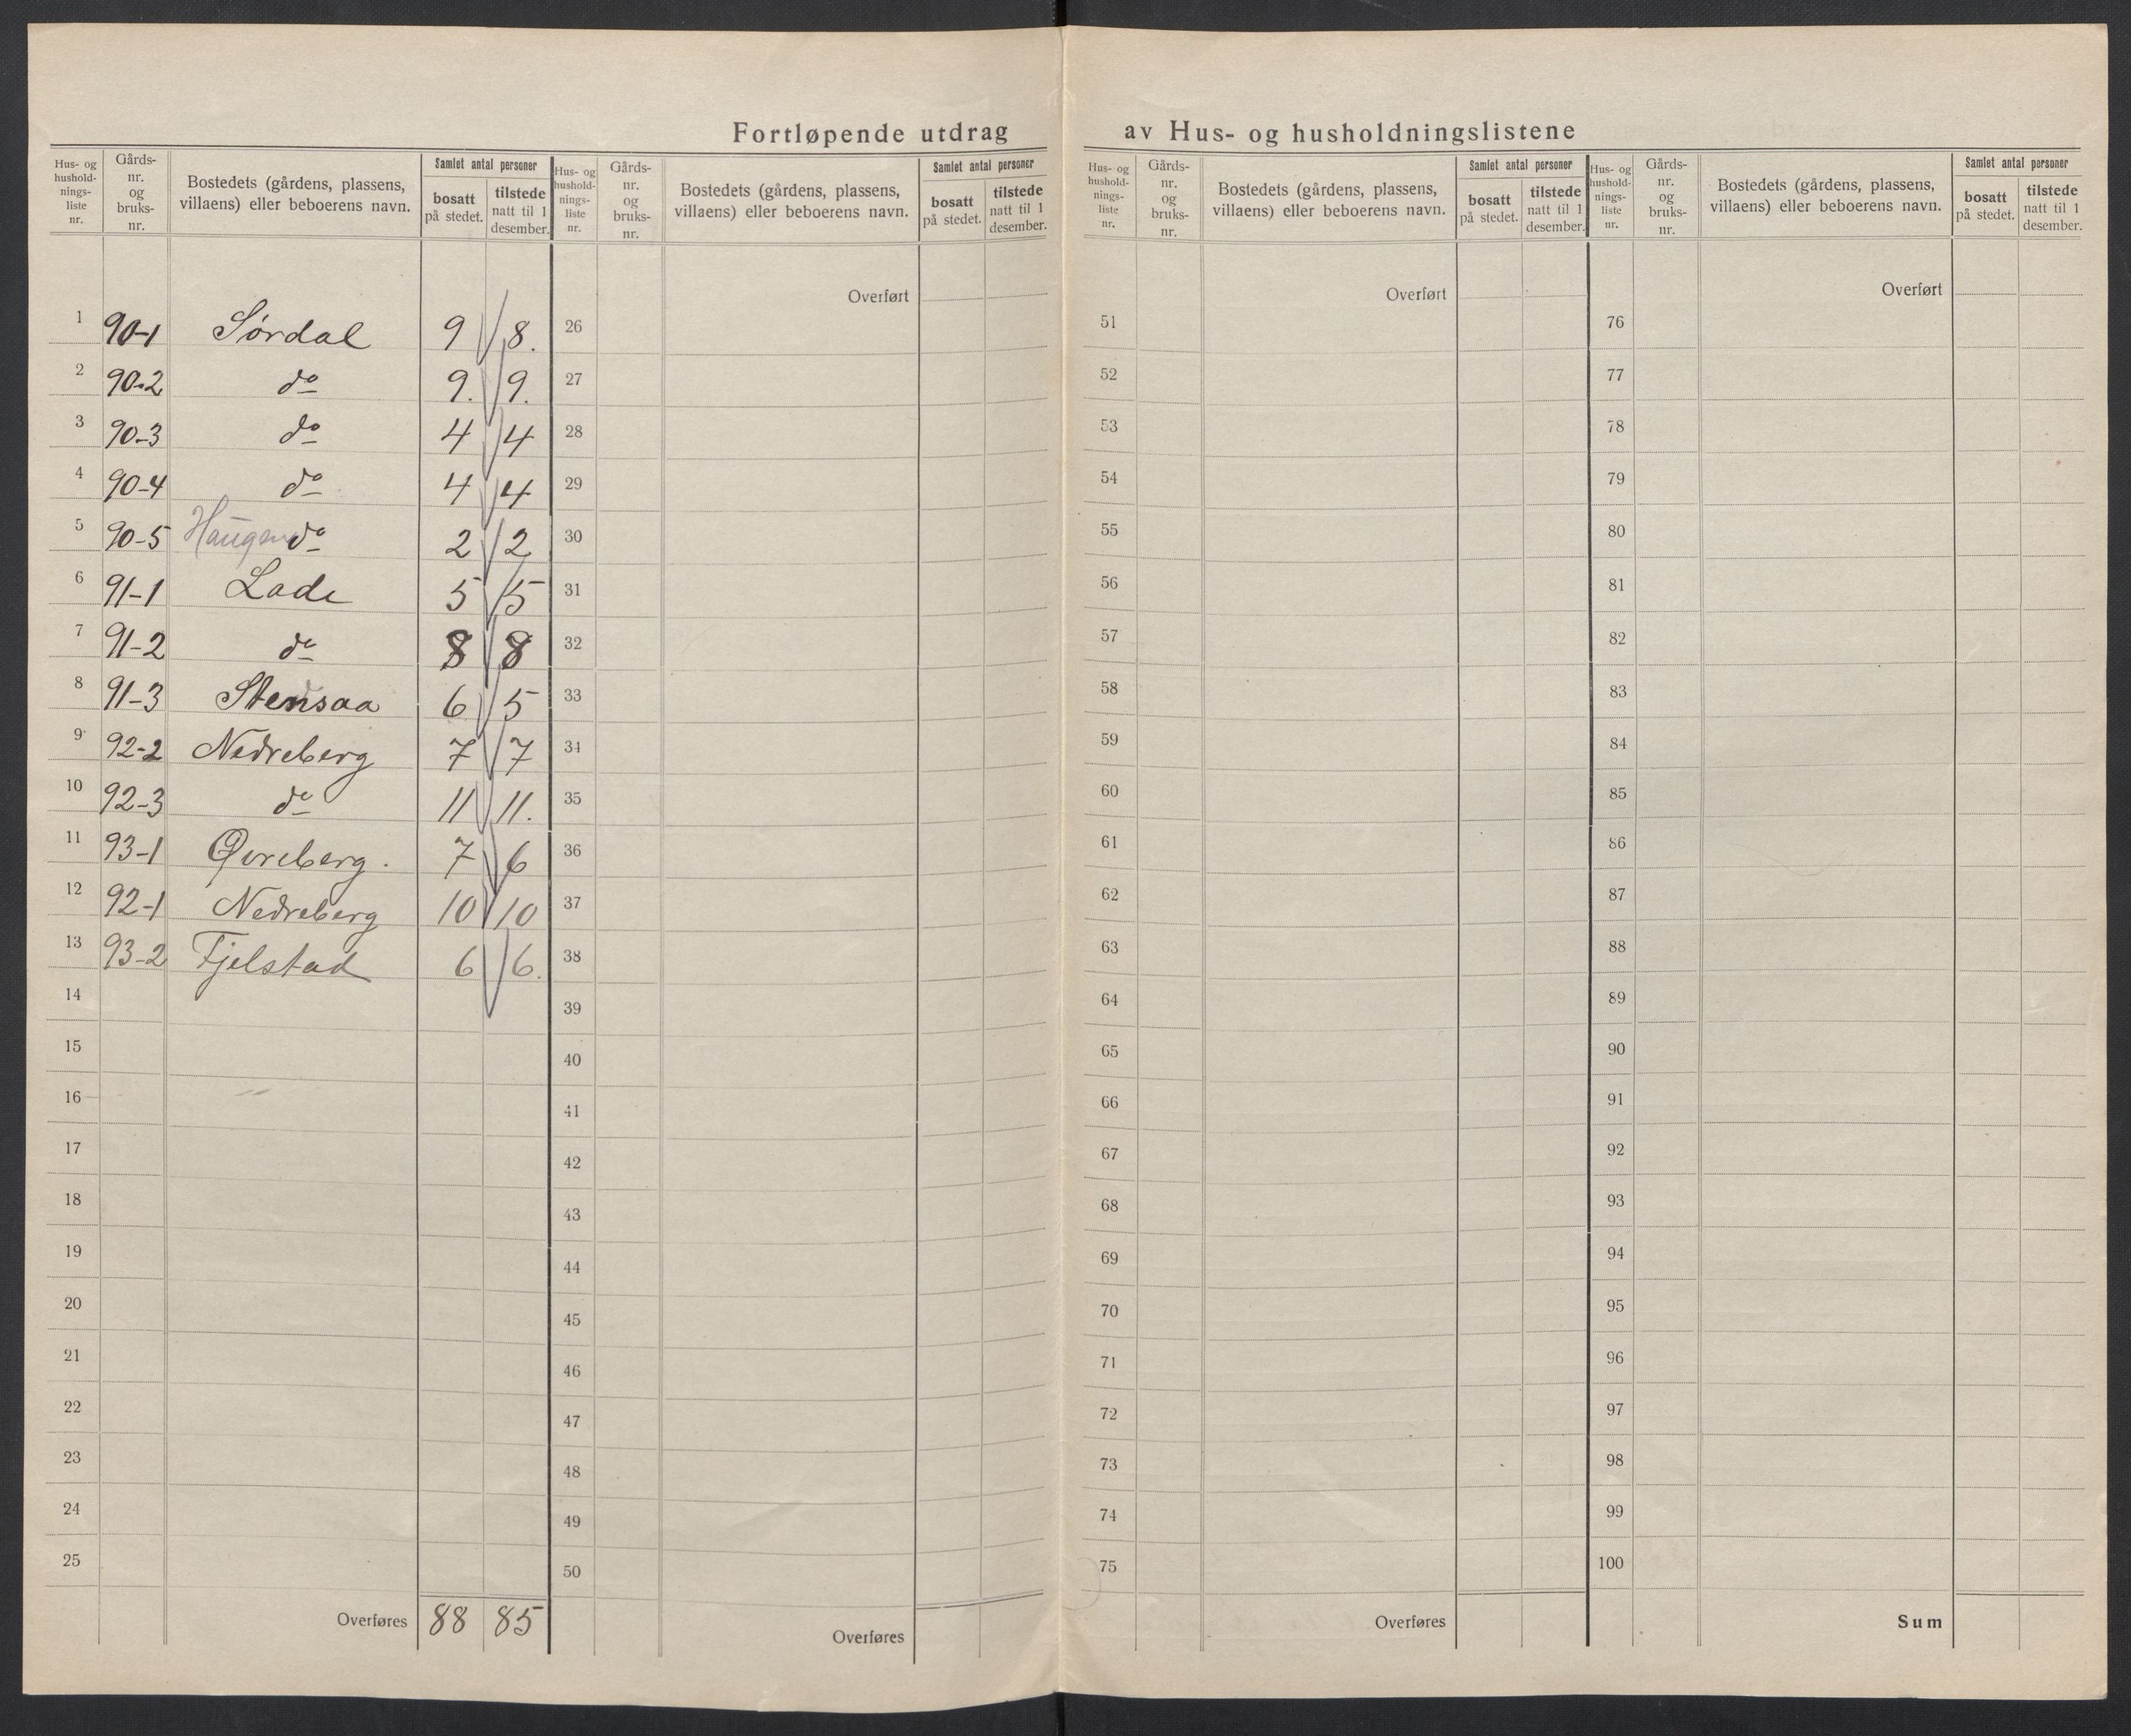 Fortløpende utdrag av Hus- og husholdningslistene
Hus- og husholdnings-liste nr. | Gårds-nr. og bruks-nr. | Bostedets (gårdens, plassens, villaens) eller beboerens navn. | Samlet antal personer bosatt på stedet. | tilstede natt til 1 desember.
1 90-1 Sørdal 9 8.
2 90-2 do 9. 9.
3 90-3 do 4 4
4 90-4 do 4 4
5 90-5 Haugen do 2 2
6 91-1 Lade 5 5
7 91-2 do 8 8
8 91-3 Stensaa 6 5
9 92-2 Nedreberg 7 7
10 92-3 do 11 11.
11 93-1 Øvreberg. 7 6
12 92-1 Nedreberg 10 10
13 93-2 Fjelstad 6 6.
14
15
16
17
18
19
20
21
22
23
24
25
Overføres 88 85
Hus- og husholdnings-liste nr. | Gårds-nr. og bruks-nr. | Bostedets (gårdens, plassens, villaens) eller beboerens navn. | Samlet antal personer bosatt på stedet. | tilstede natt til 1 desember.
Overført
26
27
28
29
30
31
32
33
34
35
36
37
38
39
40
41
42
43
44
45
46
47
48
49
50
Overføres
Hus- og husholdnings-liste nr. | Gårds-nr. og bruks-nr. | Bostedets (gårdens, plassens, villaens) eller beboerens navn. | Samlet antal personer bosatt på stedet. | tilstede natt til 1 desember.
Overført
51
52
53
54
55
56
57
58
59
60
61
62
63
64
65
66
67
68
69
70
71
72
73
74
75
Overføres
Hus- og husholdnings-liste nr. | Gårds-nr. og bruks-nr. | Bostedets (gårdens, plassens, villaens) eller beboerens navn. | Samlet antal personer bosatt på stedet. | tilstede natt til 1 desember.
Overført
76
77
78
79
80
81
82
83
84
85
86
87
88
89
90
91
92
93
94
95
96
97
98
99
100
Sum